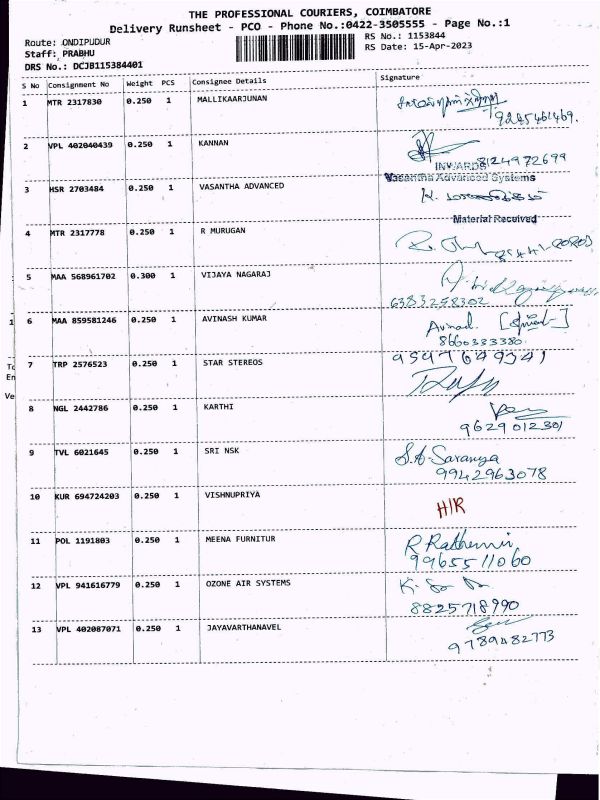 THE PROFESSIONAL COURIERS, COIMBATORE
Delivery Runsheet - PCO - Phone No.:0422-3505555 - Page No.:1
Route: ONDIPUDUR RS No.: 1153844
Staff: PRABHU RS Date: 15-Apr-2023
DRS No.: DCJB115384401
S No Consignment No Weight PCS Consignee Details Signature
1 MTR 2317830 0.250 1 MALLIKAARJUNAN
9245461469.
2 VPL 402040439 0.250 1 KANNAN
INWARDS 8124972699
3 HSR 2703484 0.250 1 VASANTHA ADVANCED Vasantha Advanced Systems
Material Received
4 MTR 2317778 0.250 1 R MURUGAN
5 MAA 568961702 0.300 1 VIJAYA NAGARAJ
6383258302
6 MAA 859581246 0.250 1 AVINASH KUMAR
8660333380
7 TRP 2576523 0.250 1 STAR STEREOS
8 NGL 2442786 0.250 1 KARTHI
9629012301
9 TVL 6021645 0.250 1 SRI NSK S.A-Saranya
9942963078
10 KUR 694724203 0.250 1 VISHNUPRIYA H/R
11 POL 1191803 0.250 1 MEENA FURNITUR
9965511060
12 VPL 941616779 0.250 1 OZONE AIR SYSTEMS
8825718990
13 VPL 402087071 0.250 1 JAYAVARTHANAVEL
9789482773